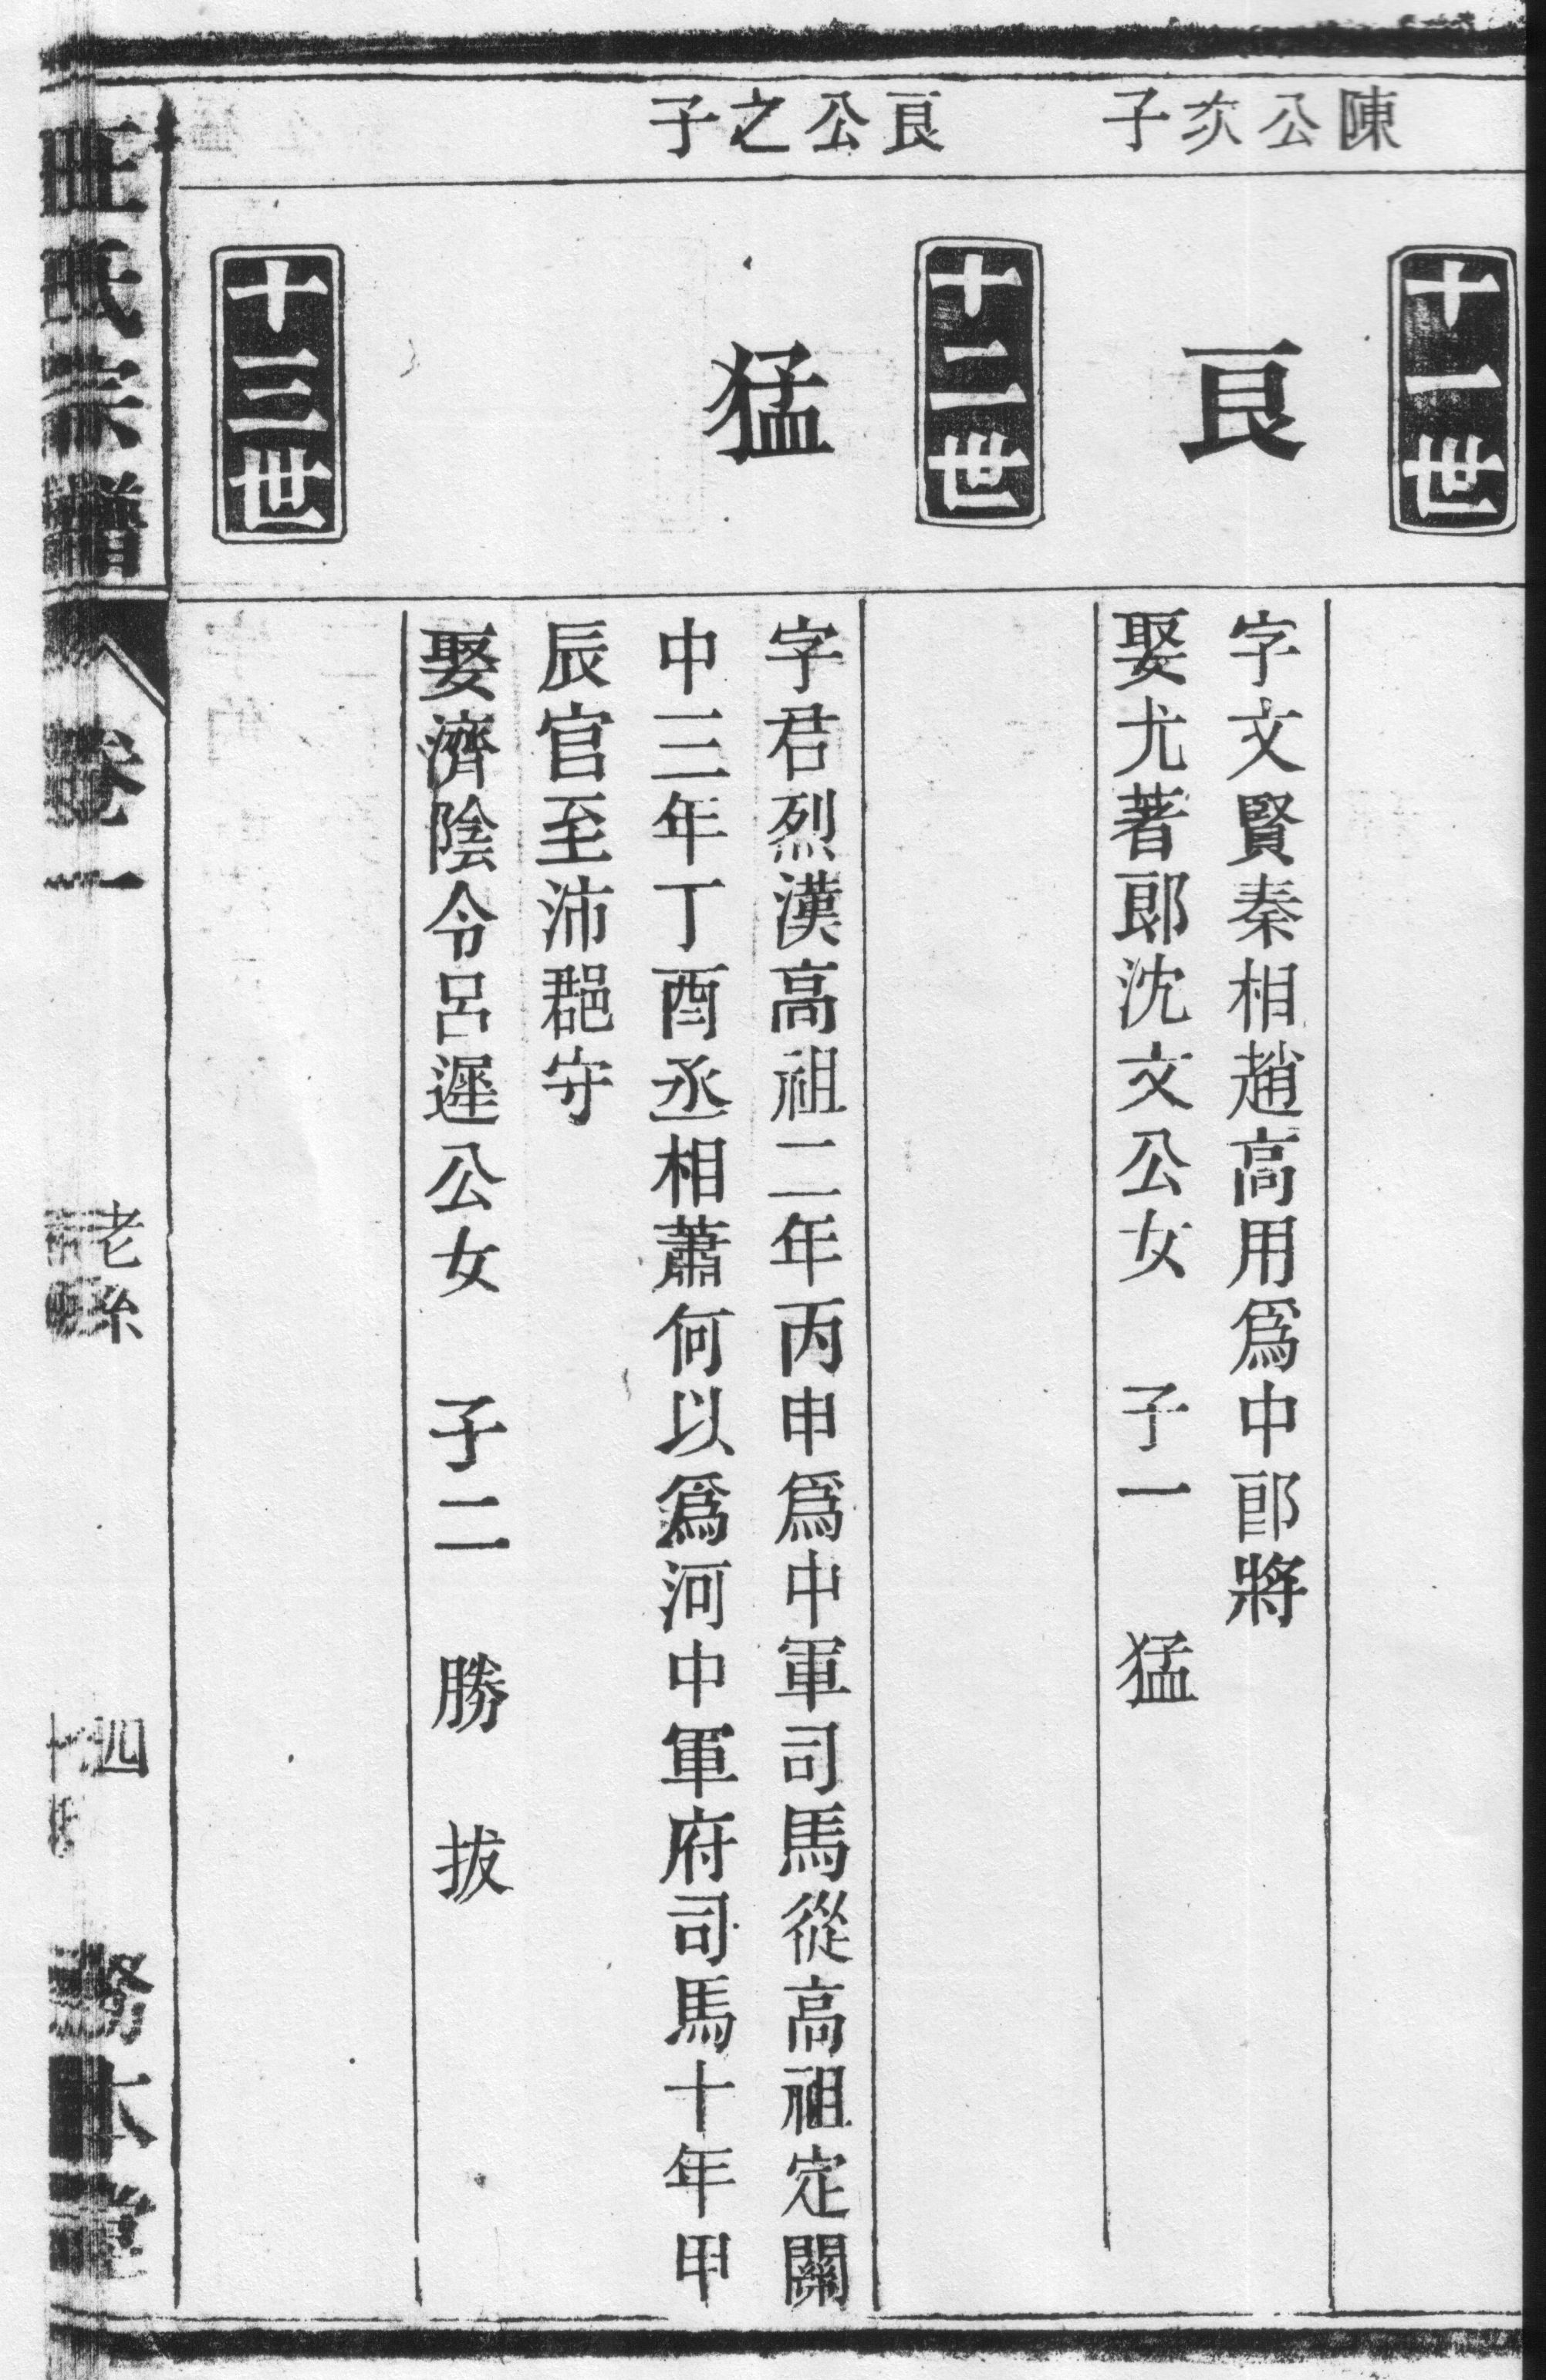 十一世
陳公次子
良
字文賢秦相趙高用爲中郎將
娶尤著郎沈文公女 子一 猛
十二世
良公之子
猛
字君烈漢高祖二年丙申爲中軍司馬從高祖定關
中三年丁酉丞相蕭何以爲河中軍府司馬十年甲
辰官至沛郡守
娶濟陰令呂遲公女 子二 勝 拔
十三世
汪氏宗譜
卷一
老系
四
務本堂